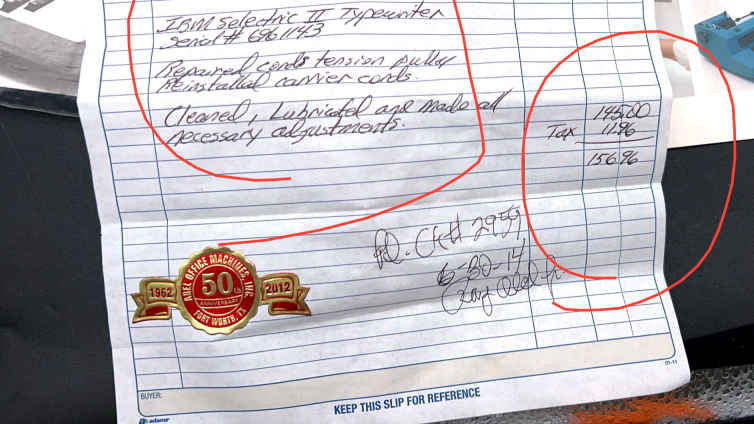 IBM Selectric II Typewriter
Serial # 6961143
Repaired cords tension pulley
Reinstalled carrier cords.
Cleaned, Lubricated and made all
necessary adjustments.
145.00
Tax 11.96
156.96
Pd. Ck# 2959
6-30-14
ADEL OFFICE MACHINES, INC.
1962 50th 2012
ANNIVERSARY
FORT WORTH, TX
01-11
BUYER:
adams
KEEP THIS SLIP FOR REFERENCE